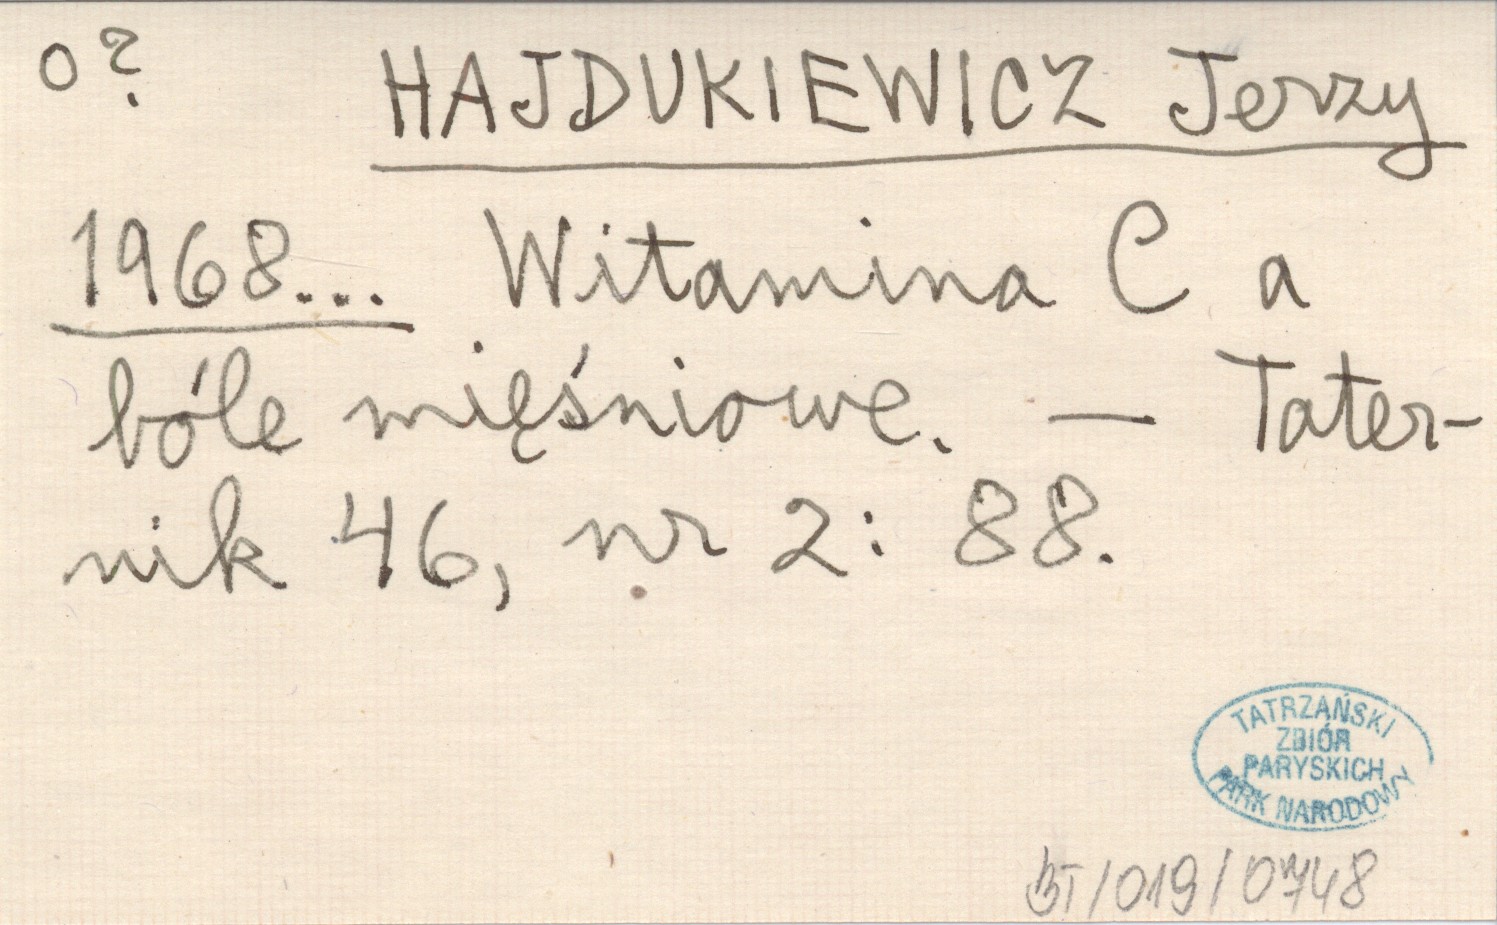 o? HAJDUKIEWICZ Jerzy
1968... Witamina C a
bóle mięśniowe. — Tater-
nik 46, nr 2: 88.
TATRZAŃSKI
ZBIÓR
PARYSKICH
PARK NARODOWY
BT/019/0748